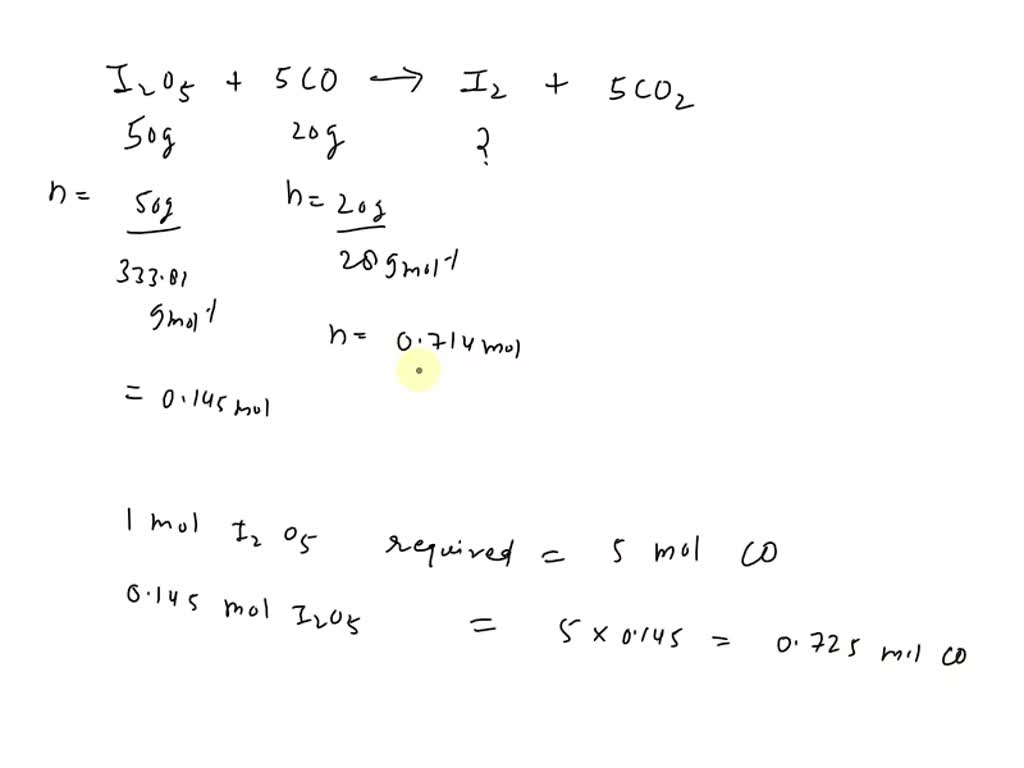 I₂O₅ + 5CO → I₂ + 5CO₂
50g 20g ?
n = 50g / 333.81 gmol⁻¹ n = 20g / 28 gmol⁻¹
n = 0.714 mol
= 0.145 mol
1 mol I₂O₅ required = 5 mol CO
0.145 mol I₂O₅ = 5 × 0.145 = 0.725 mol CO